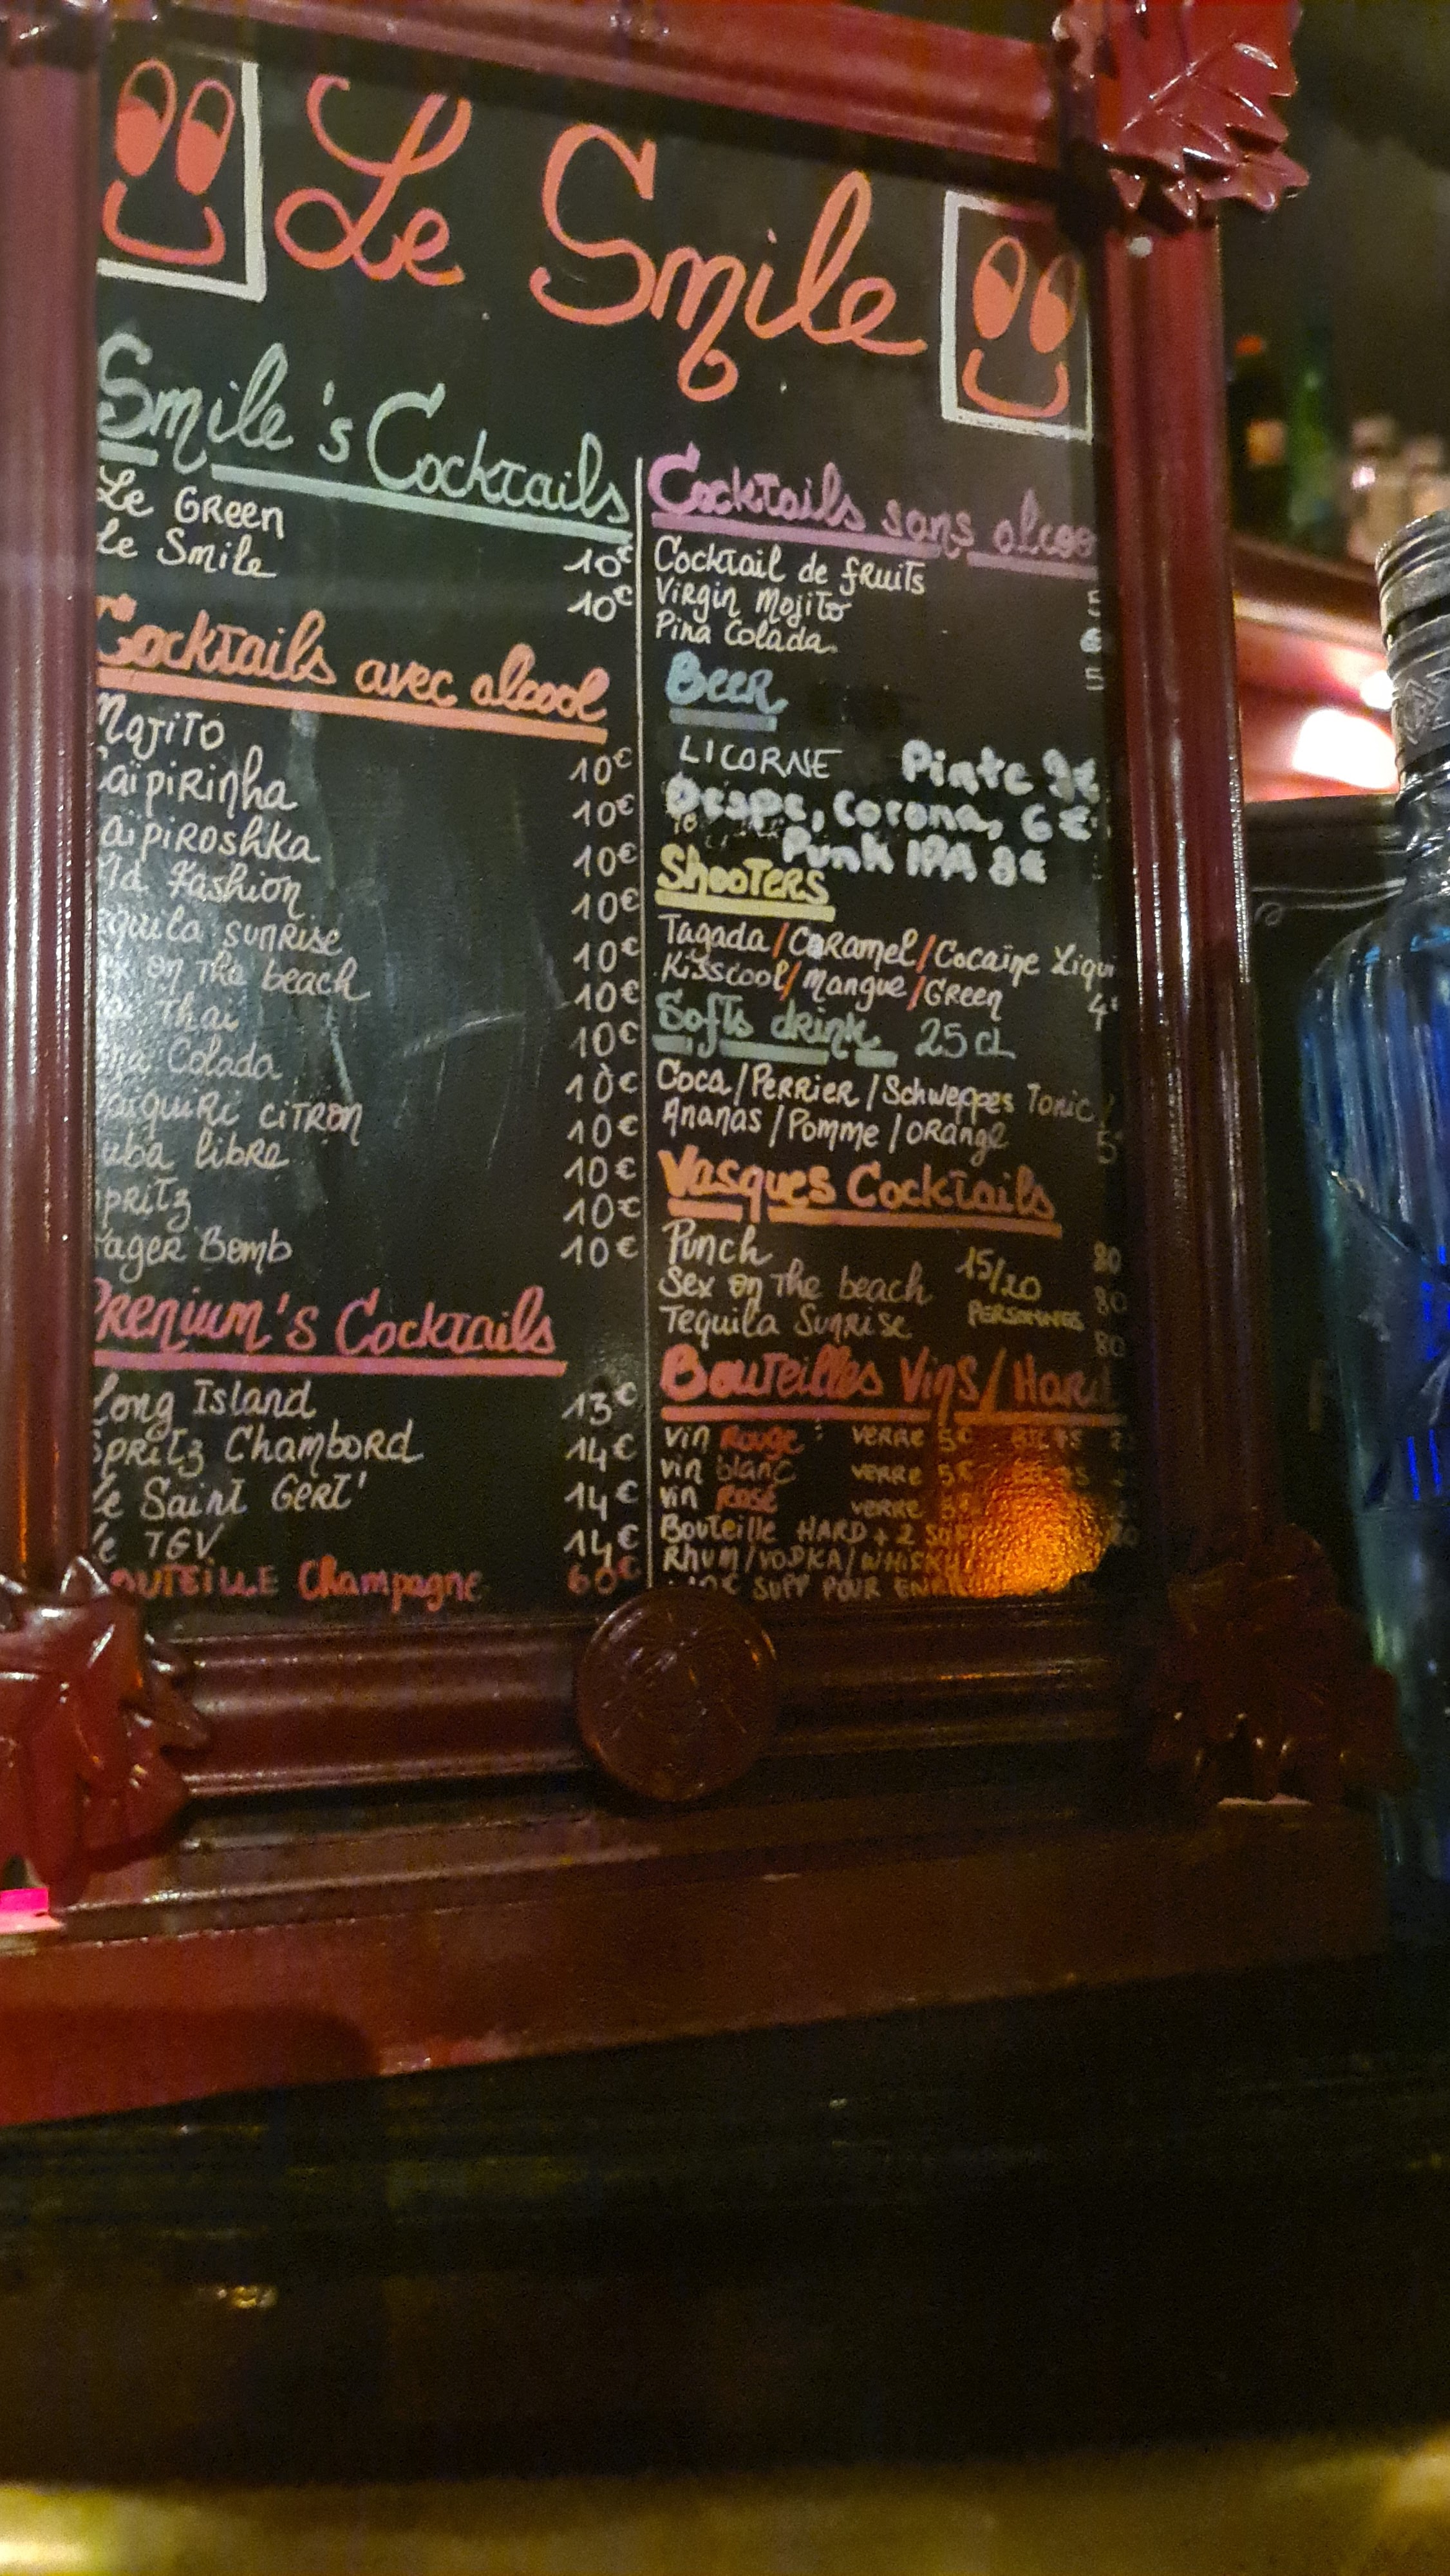 Le Smile
Smile's Cocktails
Le Green 10€
Le Smile 10€
Cocktails avec alcool
Mojito 10€
aïpirinha 10€
aïpiroshka 10€
ld Fashion 10€
quila sunrise 10€
x on the beach 10€
Thai 10€
a Colada 10€
aïquiri citron 10€
uba libre 10€
pritz 10€
ager Bomb 10€
Prenium's Cocktails
Long Island 13€
Spritz Chambord 14€
Le Saint Gert' 14€
Le TGV 14€
OUTEILLE Champagne 60€
Cocktails sans alcoo
Cocktail de fruits 5
Virgin Mojito
Pina Colada 5
Beer
LICORNE Pinte 9€
Despe, Corona, 6€
Punk IPA 8€
Shooters
Tagada/Caramel/Cocaïne Liqui
Kisscool/Mangue/Green 4€
Softs drink 25cl
Coca/Perrier/Schweppes Tonic/
Ananas/Pomme/Orange 5€
Vasques Cocktails
Punch 15/20 80
Sex on the beach PERSONNES 80
Tequila Sunrise 80
Bouteilles Vins/Hard
vin rouge: verre 5€
vin blanc verre 5€
vin rosé verre 5€
Bouteille HARD + 2
Rhum/VODKA/WHISKY
SUPP POUR